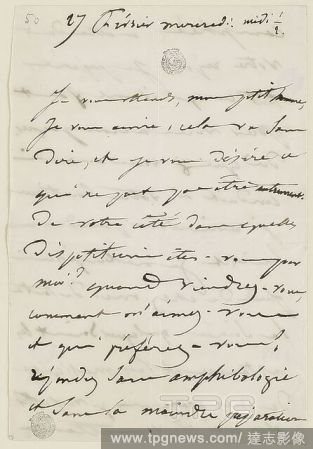 50
27 Février mercredi midi 1/2
Je vous attends, mon petit homme,
Je vous aime, cela va sans
dire, et je vous désire ce
qui ne peut pas être autrement.
De votre côté dans quelles
dispositions êtes-vous pour
moi? quand viendrez-vous,
comment m'aimez-vous
et qui préférez-vous?
répondez sans amphibologie
et sans la moindre préparation
TPG
www.tpgnews.com / 達志影像